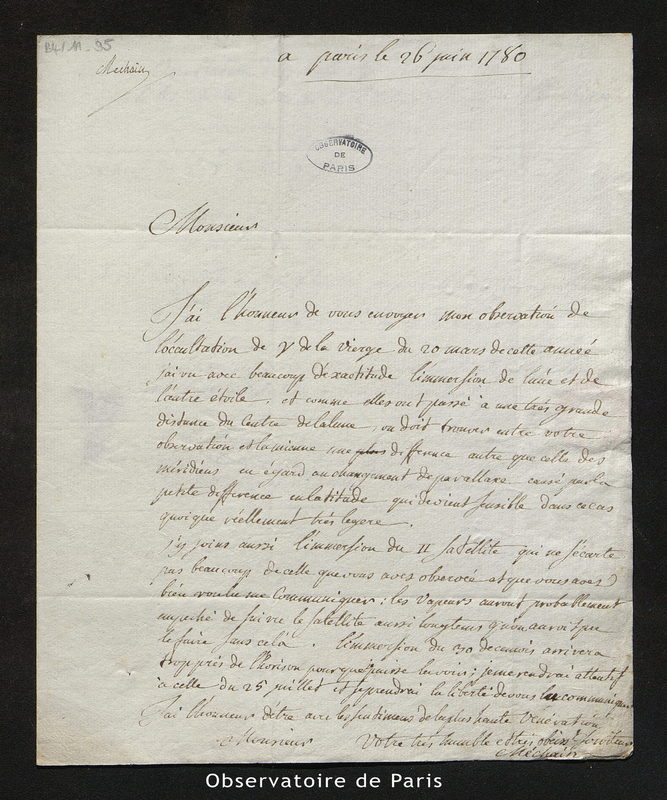 B4/11-95
Mechain
a paris le 26 juin 1780
OBSERVATOIRE
DE
PARIS
Monsieur
J'ai l'honneur de vous envoyer mon observation de
l'occultation de γ de la vierge du 20 mars de cette année
j'ai vu avec beaucoup d'exactitude l'immersion de l'une et de
l'autre étoile, et comme elles ont passé à une très grande
distance du Centre de la lune, on doit trouver entre votre
observation et la mienne une plus difference autre que celle des
méridiens eu égard au changement de parallaxe causé par la
petite difference en latitude qui devient sensible dans ce cas
quoique réellement très legere.
j'y joins aussi l'immersion du II Satellite qui ne s'écarte
pas beaucoup de celle que vous avés observée et que vous avés
bien voulu me Communiquer: les vapeurs auront probablement
empeché de suivre le satellite aussi longtems qu'on auroit pu
le faire sans celà. l'immersion du 30 de ce mois arrivera
trop près de l'horison pour que puisse la voir; je me rendrai attentif
à celle du 25 juillet et je prendrai la liberté de vous la communiquer
J'ai l'honneur d'être avec les sentimens de la plus haute Vénération
Monsieur Votre très humble et très obéiss.t Serviteur
Méchain
Observatoire de Paris